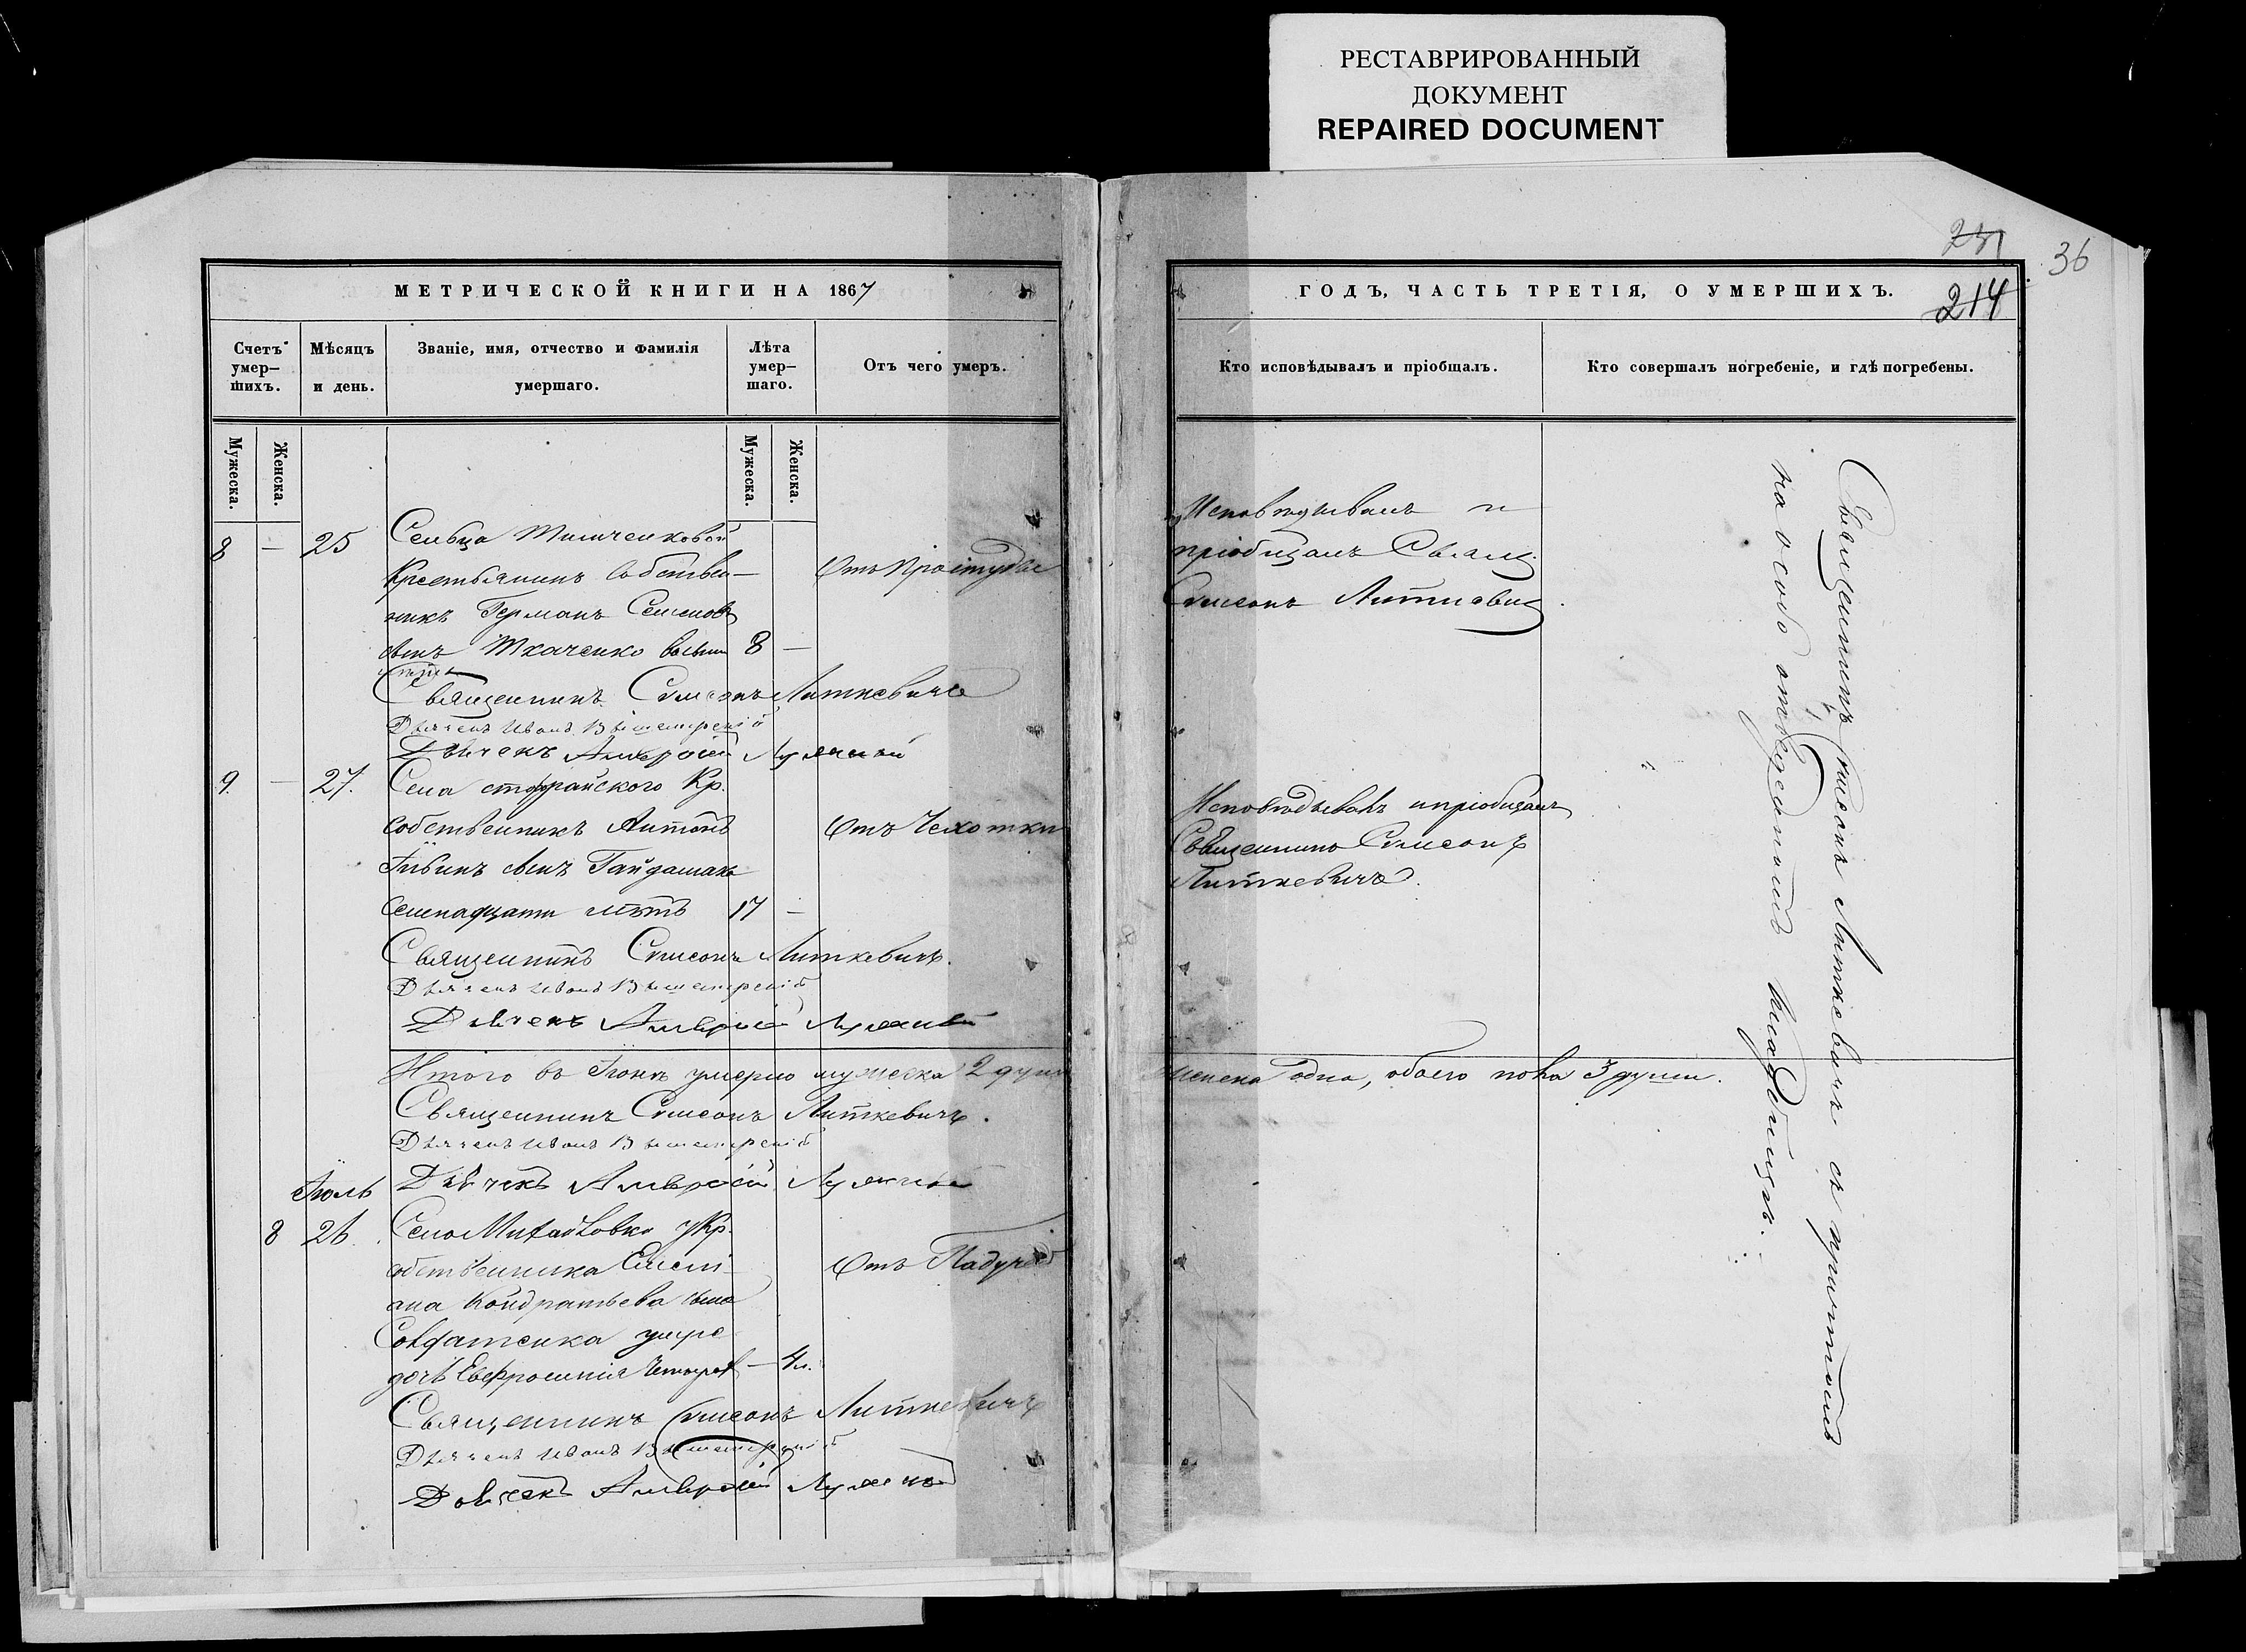 РЕСТАВРИРОВАННЫЙ
ДОКУМЕНТ
REPAIRED DOCUMENT
36
214
МЕТРИЧЕСКОЙ КНИГИ НА 1867
ГОДЪ, ЧАСТЬ ТРЕТІЯ, О УМЕРШИХЪ.
Счетъ умер–шихъ.
Мѣсяцъ и день.
Званіе, имя, отчество и фамилія умершаго.
Лѣта умер–шаго.
Отъ чего умеръ.
Кто исповѣдывалъ и пріобщалъ.
Кто совершалъ погребеніе, и гдѣ погребены.
Мужеска.
Женска.
Мужеска.
Женска.
8 — 25 Сельца
Крестьянинъ собствен– Отъ Простуды
никъ Германъ Семеновъ
сынъ Ткаченко 8 —
Священникъ Симеонъ Литкевичъ
Дьячекъ Иванъ
Дьячекъ Амвросій
Исповѣдывалъ и
пріобщалъ Свящ.
Симеонъ Литкевич
9. — 27. Села Кр.
собственникъ Антонъ Отъ Чехотки
сынъ Гайдамака
семнадцати лѣтъ 17 —
Священникъ Симеонъ Литкевичъ.
Дьячекъ Иванъ
Дьячекъ Амвросій
Исповѣдывалъ и пріобщалъ
Священникъ Симеонъ
Литкевичъ.
Итого въ Іюнѣ умерло мужеска 2 души
женска одна, обоего пола 3 души.
Священникъ Симеонъ Литкевичъ.
Дьячекъ Иванъ
Іюль Дьячекъ Амвросій
8 26. Село Михайловка у Кр.
собственника Емелі– Отъ Падучей
ана Кондратьева сына
Солдатенка умре
дочь Евфросинія 4 л.
Священникъ Симеонъ Литкевичъ
Дьячекъ Иванъ
Дьячекъ Амвросій
Священникъ Симеонъ Литкевичъ съ причтомъ
на особо отведенномъ кладбищѣ.